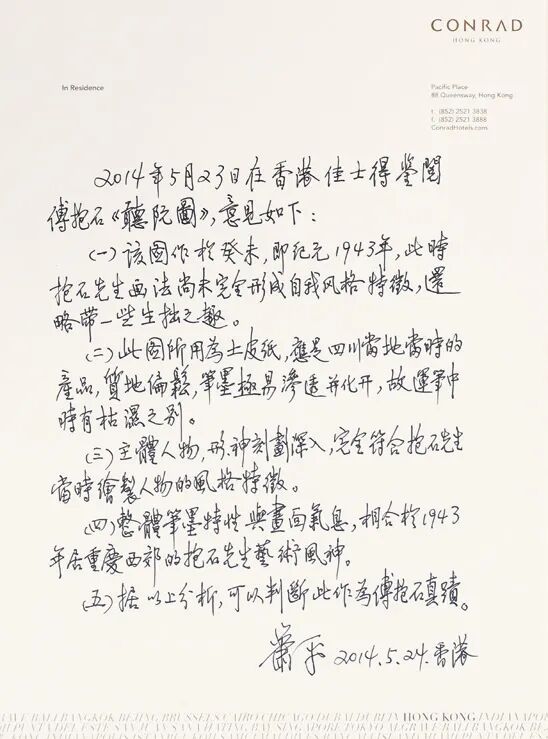 CONRAD
HONG KONG
In Residence
Pacific Place
88 Queensway, Hong Kong
t. (852) 2521 3838
f. (852) 2521 3888
ConradHotels.com
2014年5月23日在香港佳士得鉴閱
傅抱石《聽阮圖》,意見如下:
(一)该图作於癸未,即纪元1943年,此時
抱石先生画法尚未完全形成自我风格特徵,還
略带一些生拙之趣。
(二)此图所用為土皮紙,應是四川當地當時的
產品,質地偏鬆,筆墨極易滲透并化开,故運筆中
時有枯濕之别。
(三)主體人物,形神刻劃深入,完全符合抱石先生
當時繪製人物的風格特徵。
(四)整體筆墨特性與畫面氣息,相合於1943
年居重慶西郊的抱石先生藝術風神。
(五)据以上分析,可以判斷此作為傅抱石真蹟。
蕭平 2014.5.24.香港
HONG KONG